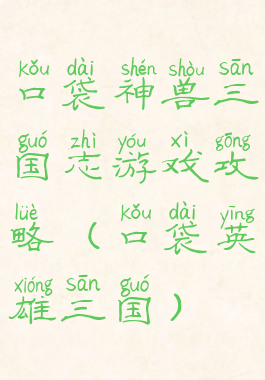 kǒu dài shén shòu sān
口袋神兽三
guó zhì yóu xì gōng
国志游戏攻
lüè kǒu dài yīng
略（口袋英
xióng sān guó
雄三国）